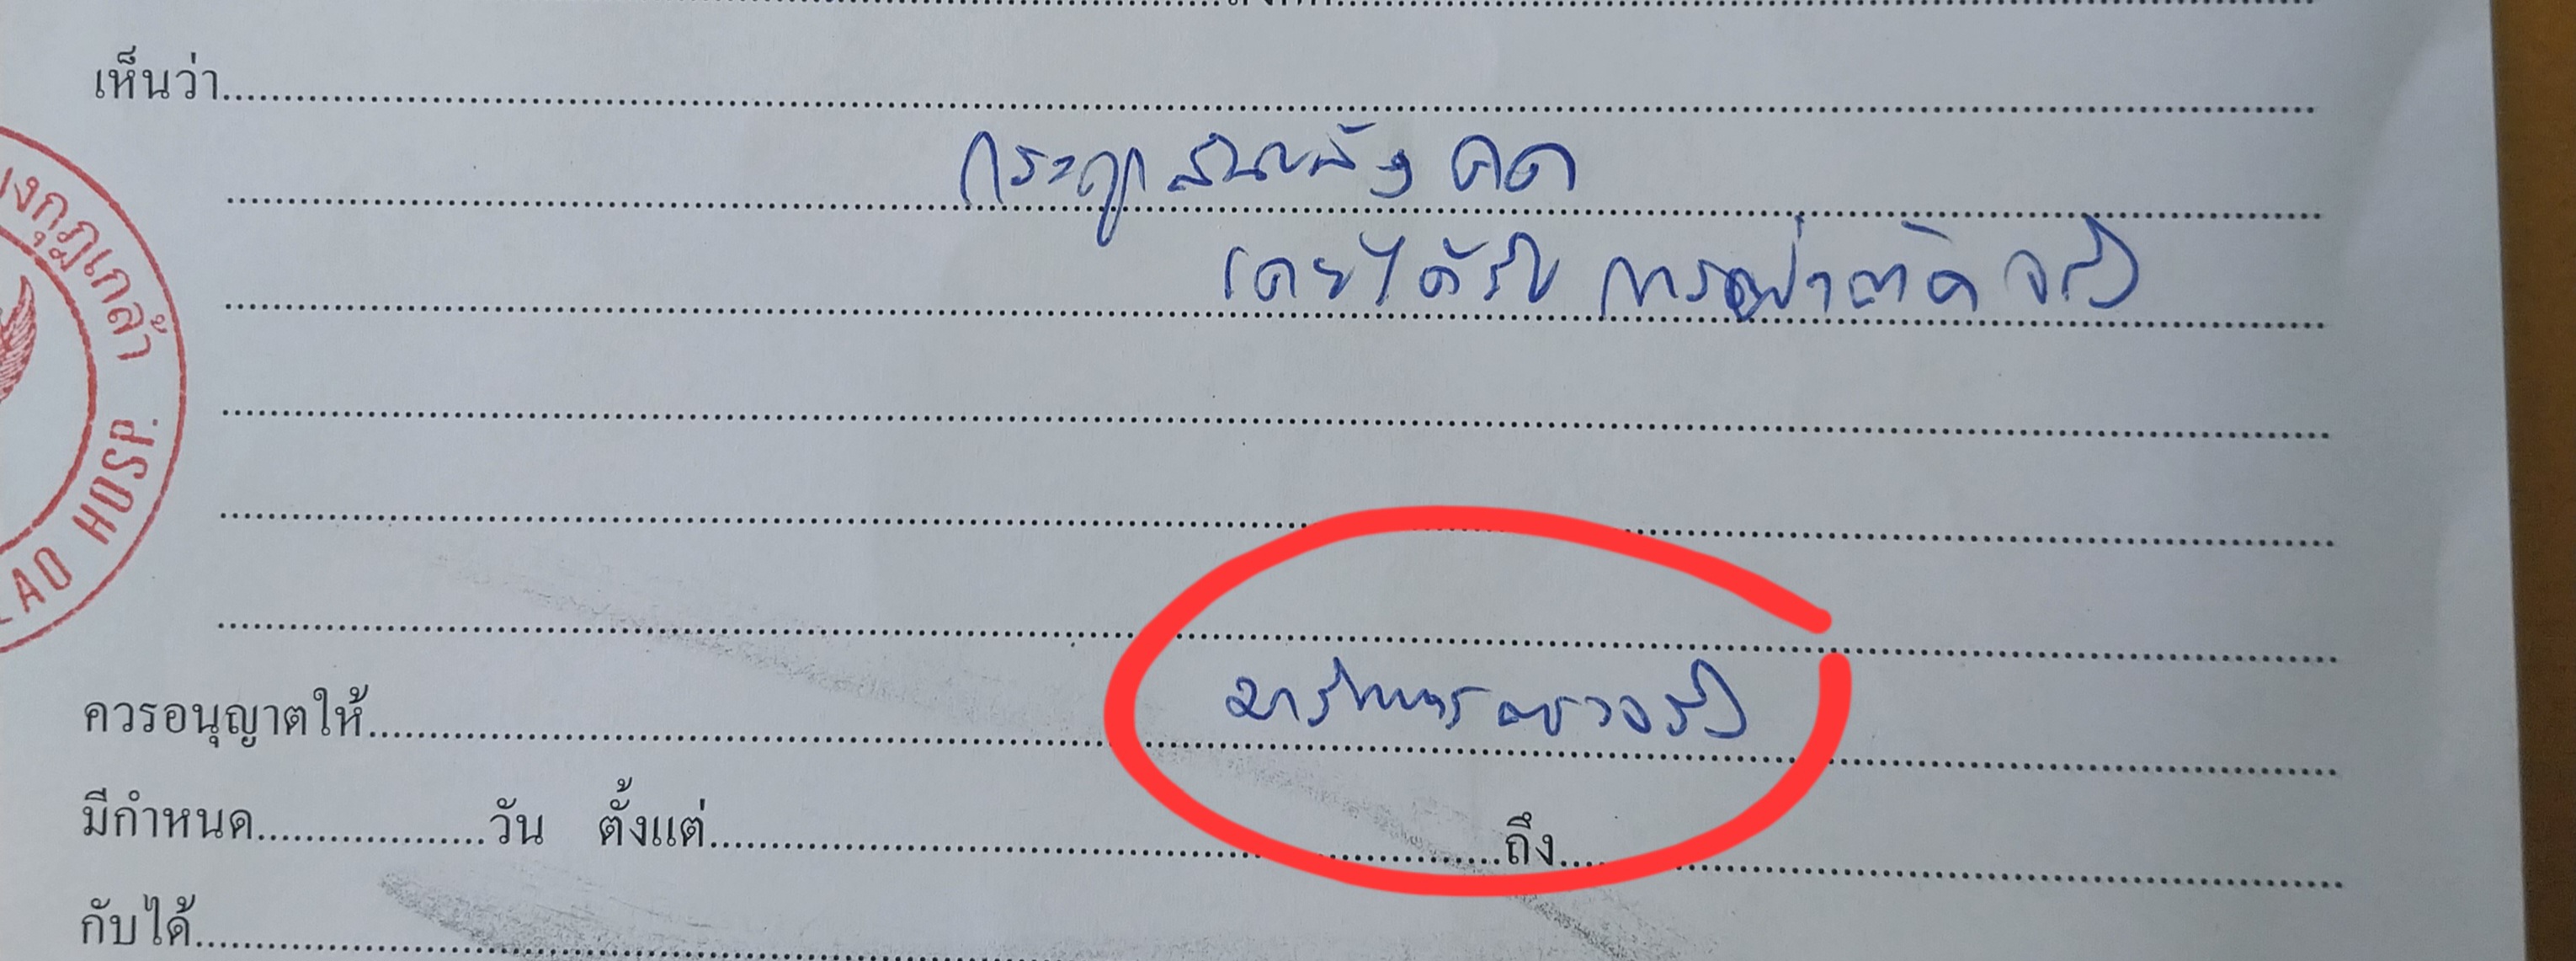 เห็นว่า
กระดูกสันหลัง คด
เคยได้รับ การผ่าตัด จริง
ควรอนุญาตให้ มารับการตรวจจริง
มีกำหนด วัน ตั้งแต่ ถึง
กับได้
งกุฎเกล้า
AO HOSP.